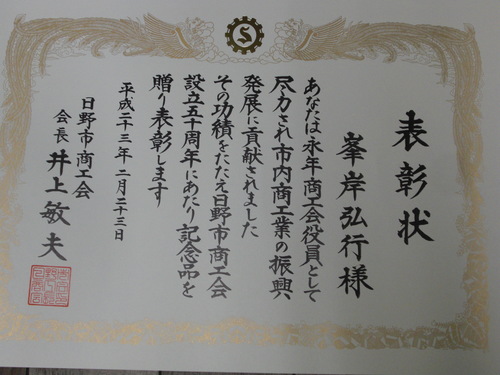 表彰状
峯岸弘行様
あなたは永年商工会役員として
尽力され市内商工業の振興
発展に貢献されました
その功績をたたえ日野市商工会
設立五十周年にあたり記念品を
贈り表彰します
平成二十三年二月二十三日
日野市商工会
会長 井上敏夫